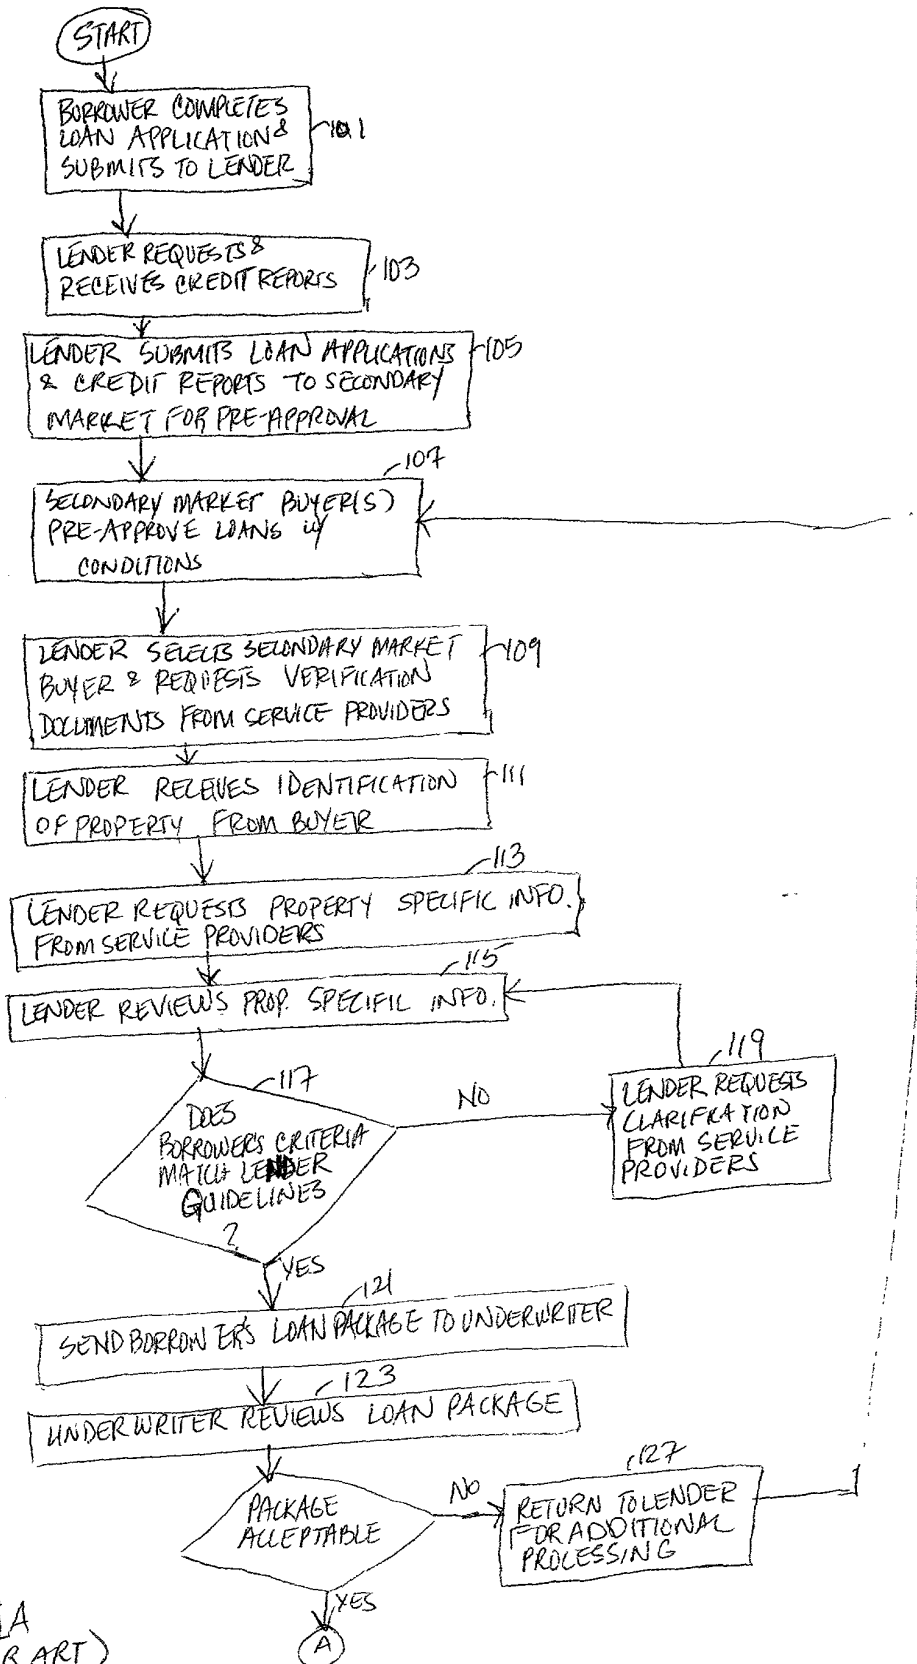 START
BORROWER COMPLETES
LOAN APPLICATION &
SUBMITS TO LENDER
101
LENDER REQUESTS &
RECEIVES CREDIT REPORTS
103
LENDER SUBMITS LOAN APPLICATIONS
& CREDIT REPORTS TO SECONDARY
MARKET FOR PRE-APPROVAL
105
107
SECONDARY MARKET BUYER(S)
PRE-APPROVE LOANS W/
CONDITIONS
LENDER SELECTS SECONDARY MARKET
BUYER & REQUESTS VERIFICATION
DOCUMENTS FROM SERVICE PROVIDERS
109
LENDER RECEIVES IDENTIFICATION
OF PROPERTY FROM BUYER
111
113
LENDER REQUESTS PROPERTY SPECIFIC INFO.
FROM SERVICE PROVIDERS
115
LENDER REVIEWS PROP. SPECIFIC INFO.
117
DOES
BORROWER'S CRITERIA
MATCH LENDER
GUIDELINES
?
NO
119
LENDER REQUESTS
CLARIFICATION
FROM SERVICE
PROVIDERS
YES
121
SEND BORROWER'S LOAN PACKAGE TO UNDERWRITER
123
UNDERWRITER REVIEWS LOAN PACKAGE
PACKAGE
ACCEPTABLE
NO
127
RETURN TO LENDER
FOR ADDITIONAL
PROCESSING
YES
A
ART)